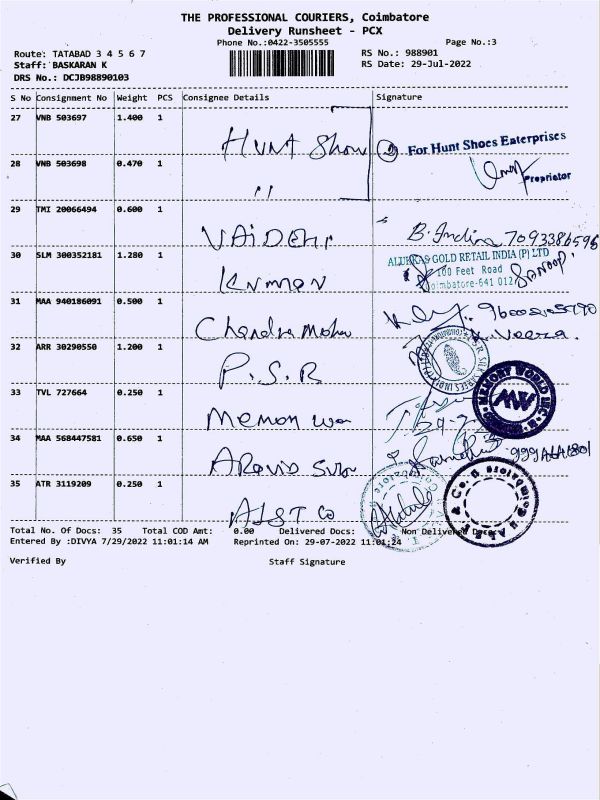 THE PROFESSIONAL COURIERS, Coimbatore
Delivery Runsheet - PCX
Phone No.:0422-3505555
Page No.:3
Route: TATABAD 3 4 5 6 7
RS No.: 988901
Staff: BASKARAN K
RS Date: 29-Jul-2022
DRS No.: DCJB98890103
S No Consignment No Weight PCS Consignee Details Signature
27 VNB 503697 1.400 1
HUNT For Hunt Shoes Enterprises
Proprietor
28 VNB 503698 0.470 1
"
29 TMI 20066494 0.600 1
VAIDEHI B. Indira 7093386596
30 SLM 300352181 1.280 1
GOLD RETAIL INDIA (P) LTD
100 Feet Road
Coimbatore-641 012
31 MAA 940186091 0.500 1
Chandra Mohan
32 ARR 30290550 1.200 1
P.S.R
33 TVL 727664 0.250 1
Memory MEMORY WORLD INC MW
34 MAA 568447581 0.650 1
35 ATR 3119209 0.250 1
Total No. Of Docs: 35 Total COD Amt: 0.00 Delivered Docs: Non Delivered Docs:
Entered By :DIVYA 7/29/2022 11:01:14 AM Reprinted On: 29-07-2022 11:01:24
Verified By Staff Signature